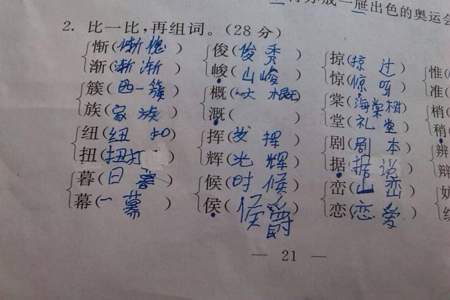 出色的奥运会
2. 比一比,再组词。(28 分)
惭(惭愧) 俊(俊秀) 掠(掠过) 惟(
渐(渐渐) 峻(山峻) 惊(惊吓) 准(
簇(一簇) 概(大概) 棠(海棠树) 梢(
族(家族) 溉( ) 堂(礼堂) 稍(
纽(纽扣) 挥(发挥) 剧(剧本) 辨
扭(扭打) 辉(光辉) 据(据说) 辩
暮(日暮) 候(时候) 峦(山峦)
幕(一幕) 侯(侯爵) 恋(恋爱)
— 21 —